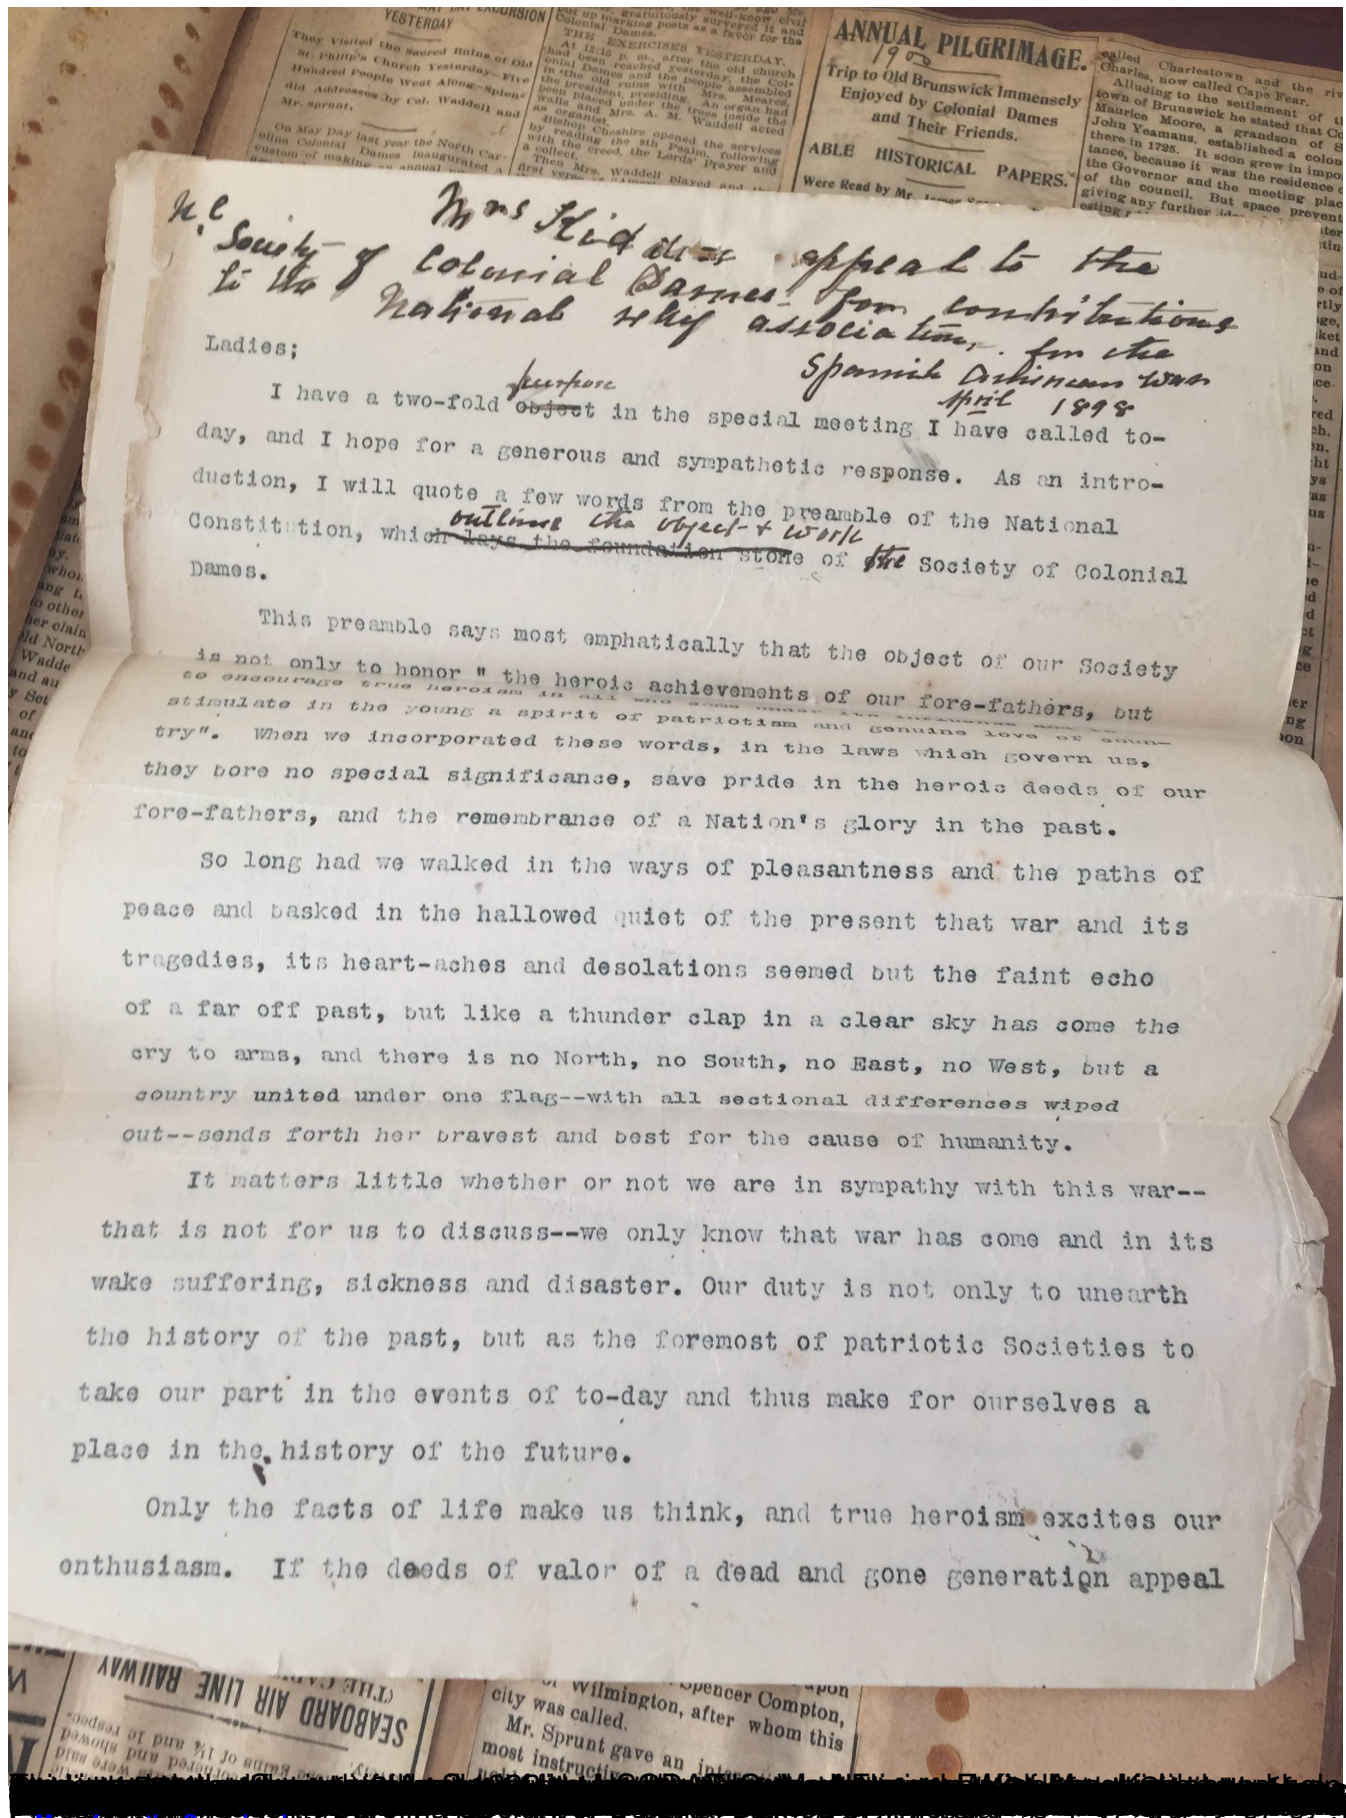 MAY DAY EXCURSION
YESTERDAY
They Visited the Sacred Ruins of Old
St. Philip's Church Yesterday—Five
Hundred People Went Along—Splen-
did Addresses by Col. Waddell and
Mr. sprunt.
On May Day last year the North Car-
olina Colonial Dames inaugurated a
custom of making an annual
gratuitously surveyed it and
put up marking posts as a favor for the
Colonial Dames.
THE EXERCISES YESTERDAY.
At 12:15 p. m., after the old church
had been reached yesterday, the Col-
onial Dames and the people assembled
in the old ruins with Mrs. Meares,
the president, presiding. An organ had
been placed under the trees inside the
walls and Mrs. A. M. Waddell acted
as organist.
Bishop Cheshire opened the services
by reading the 8th Psalm, following
with the creed, the Lords' Prayer and
a collect.
Then Mrs. Waddell played and the
first verse of
ANNUAL PILGRIMAGE.
1900
Trip to Old Brunswick Immensely
Enjoyed by Colonial Dames
and Their Friends.
ABLE HISTORICAL PAPERS.
Were Read by Mr. James
called Charlestown and the riv
Charles, now called Cape Fear.
Alluding to the settlement of th
town of Brunswick he stated that Co
Maurice Moore, a grandson of S
John Yeamans, established a colon
there in 1725. It soon grew in impor
tance, because it was the residence o
the Governor and the meeting plac
of the council. But space prevent
giving any further
N.C. Mrs Kidder's appeal to the
Society of Colonial Dames for contributions
to the National relief association, for the
Spanish American War
April 1898
Ladies;
purpose
I have a two-fold object in the special meeting I have called to-
day, and I hope for a generous and sympathetic response. As an intro-
duction, I will quote a few words from the preamble of the National
outlines the object & work
Constitution, which lays the foundation stone of the Society of Colonial
Dames.
This preamble says most emphatically that the object of our Society
is not only to honor " the heroic achievements of our fore-fathers, but
to encourage true heroism in all who come under its influence and to
stimulate in the young a spirit of patriotism and genuine love of coun-
try". When we incorporated these words, in the laws which govern us,
they bore no special significance, save pride in the heroic deeds of our
fore-fathers, and the remembrance of a Nation's glory in the past.
So long had we walked in the ways of pleasantness and the paths of
peace and basked in the hallowed quiet of the present that war and its
tragedies, its heart-aches and desolations seemed but the faint echo
of a far off past, but like a thunder clap in a clear sky has come the
cry to arms, and there is no North, no South, no East, no West, but a
country united under one flag--with all sectional differences wiped
out--sends forth her bravest and best for the cause of humanity.
It matters little whether or not we are in sympathy with this war--
that is not for us to discuss--we only know that war has come and in its
wake suffering, sickness and disaster. Our duty is not only to unearth
the history of the past, but as the foremost of patriotic Societies to
take our part in the events of to-day and thus make for ourselves a
place in the history of the future.
Only the facts of life make us think, and true heroism excites our
enthusiasm. If the deeds of valor of a dead and gone generation appeal
SEABOARD AIR LINE RAILWAY
Spencer Compton,
of Wilmington, after whom this
city was called.
Mr. Sprunt gave an
most